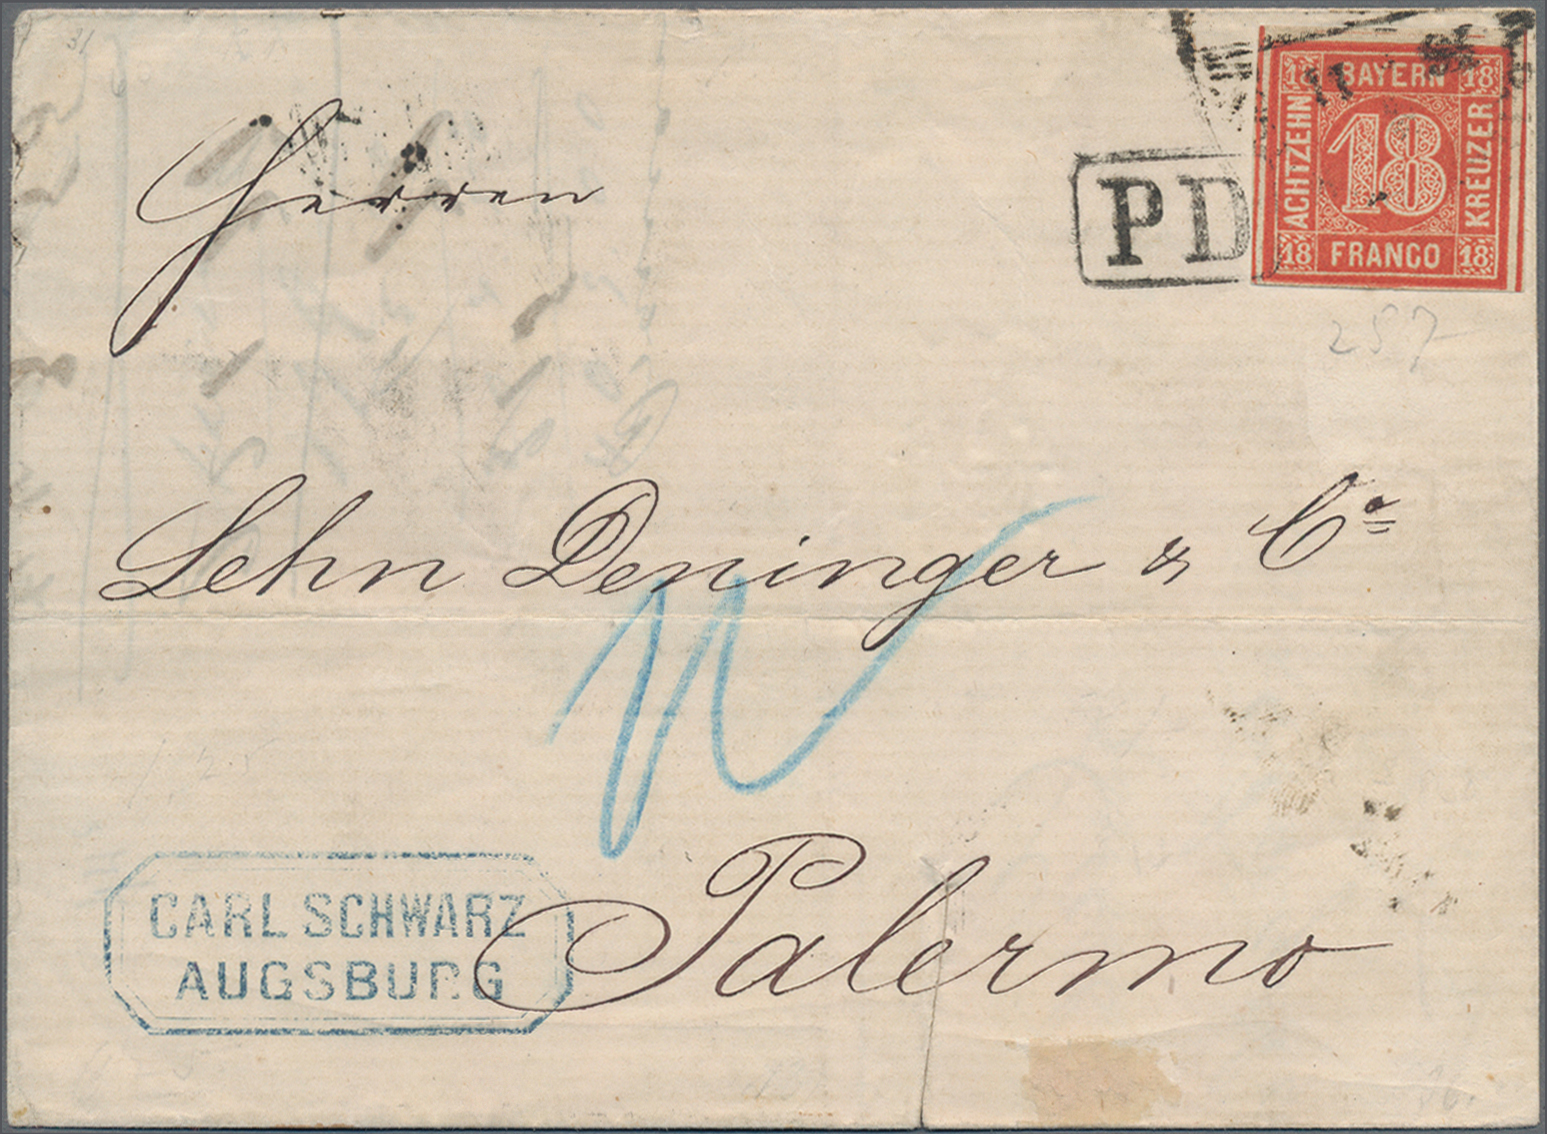 18 BAYERN 18
ACHTZEHN 18 KREUZER
18 FRANCO 18
PD
257
Herren
Lehn Deninger & Co
Palermo
CARL SCHWARZ
AUGSBURG